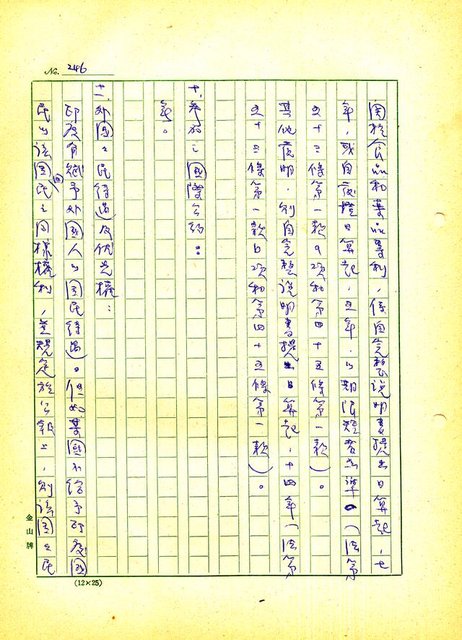 No. 246
關於食品和藥品專利，係自完整說明書提出日算起，七
年，或自發證日算起，五年，以期限短者為準。（法第
五十三條第一款a項和第四十五條第一款）。
其他發明，則自完整說明書提出日算起，十四年（法第
五十三條第一款b項和第四十五條第一款）。
十、參加之國際公約：
無。
十一、外國之國民待遇及優先權：
印度有給予外國人以國民待遇。但如某國不給予印度國
民以該國國民之同樣權利，並規定於公報上，則該國之民
金山牌
(12×25)